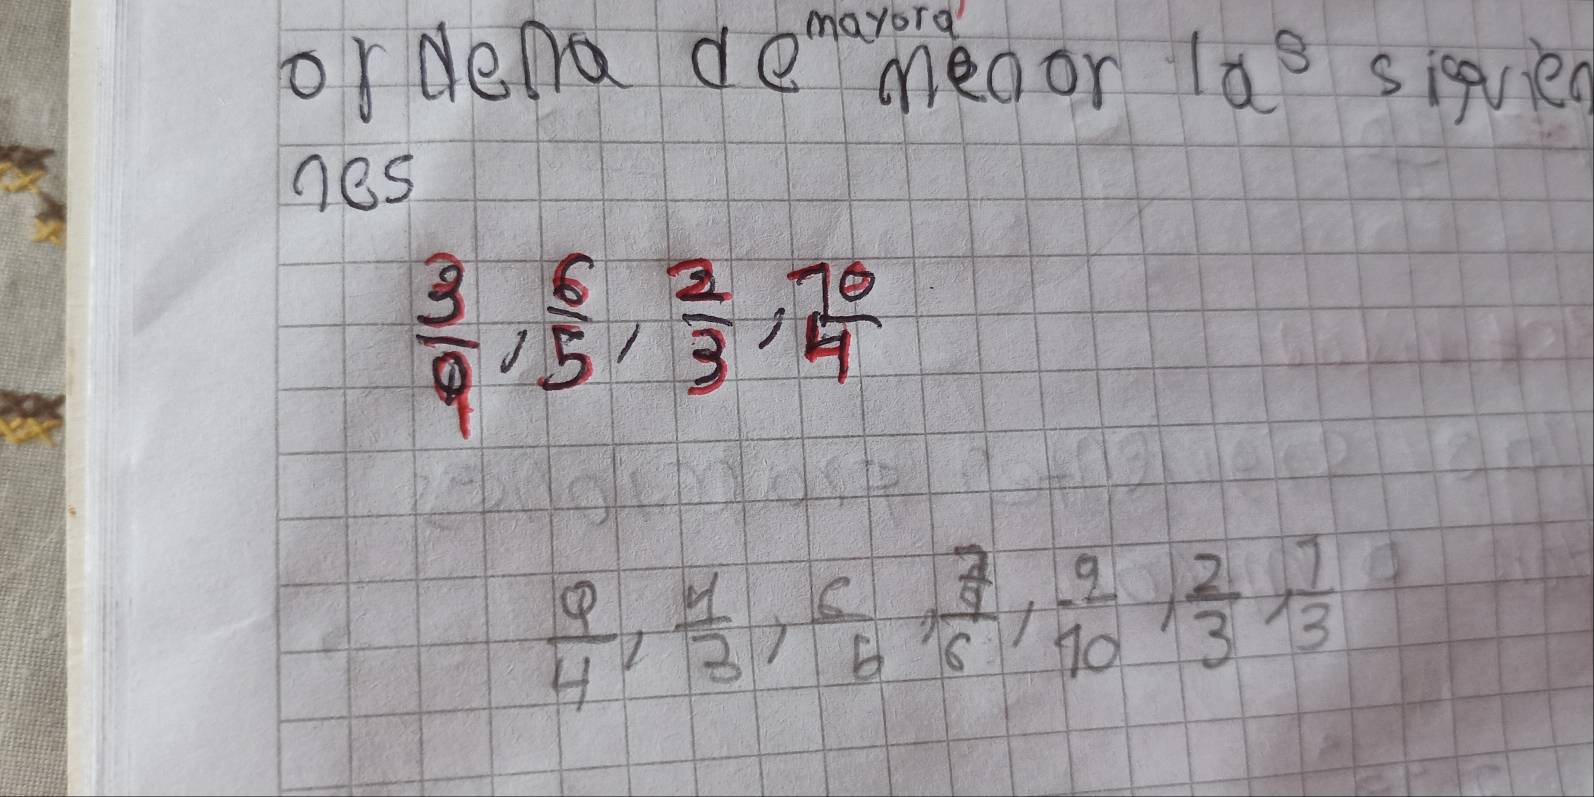 ordena de mayor a menor las siguien
nes
3/9, 6/5, 2/3, 10/4
9/4, 4/3, 6/5, /6, 9/10, 2/3, 1/3